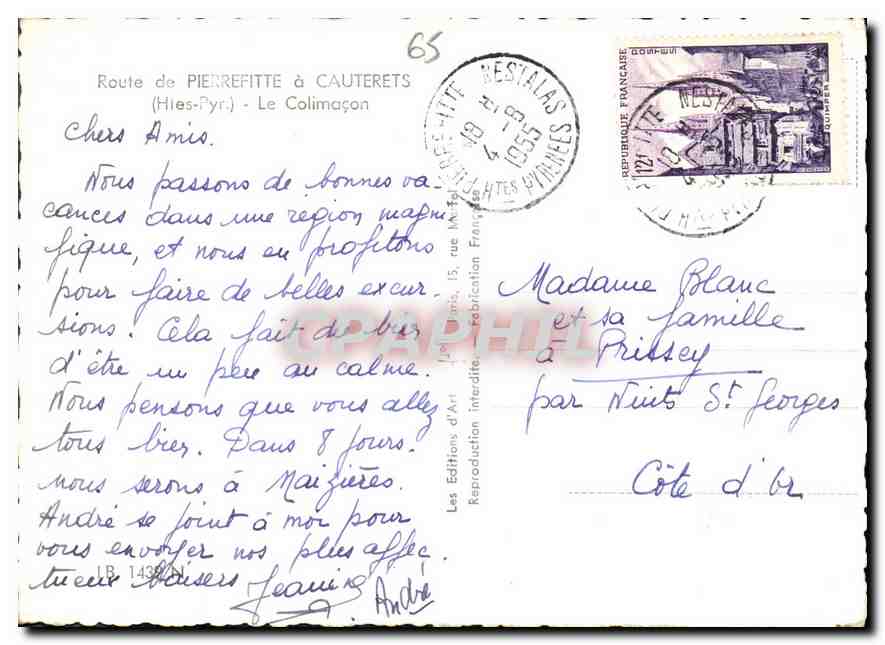 65
Route de PIERREFITTE à CAUTERETS
(Htes-Pyr.) - Le Colimaçon
PIERREFITTE NESTALAS
18 H
8-
4 1955
HTES PYRENEES
REPUBLIQUE FRANÇAISE
POSTES
12f
QUIMPER
Chers Amis.
Nous passons de bonnes va
cances dans une région magni
fique, et nous en profitons
pour faire de belles excur-
sions. Cela fait du bien
d'être un peu au calme.
Nous pensons que vous allez
tous bien. Dans 8 jours.
nous serons à Maizières.
André se joint à moi pour
vous envoyer nos plus affec
tueux baisers Jeanine
André
LB 1439
Les Editions d'Art Paris, 15, rue Martel
Reproduction interdite. Fabrication Française
CPAPHIL
Madame Blanc
et sa famille
à Prissey
par Nuits St Georges
Côte d'Or